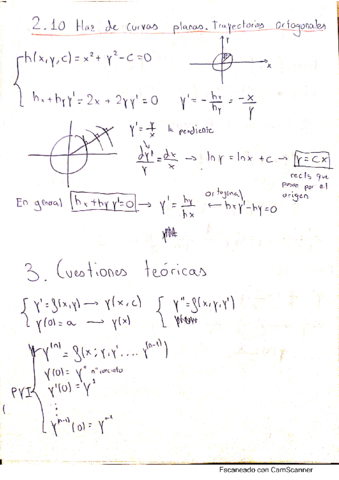 2.10 Haz de curvas planas. Trayectorias ortogonales
h(x,y,c) = x² + y² - c = 0
hx + hy y' = 2x + 2yy' = 0   y' = - hx/hy = -x/y
y' = y/x la pendiente
dy/y = dx/x → ln y = ln x + c → y = cx
rectas que pasan por el origen
En general hx + hy y' = 0 → y' = hy/hx ← ortogonal hx y' - hy = 0
3. Cuestiones teóricas
y' = f(x,y) → y(x,c)   y'' = f(x,y,y')
y(0) = a → y(x)
PVI
y⁽ⁿ⁾ = f(x; y, y' .... y⁽ⁿ⁻¹⁾)
y(0) = y⁰ nº concreto
y'(0) = y¹
⋮
y⁽ⁿ⁻¹⁾(0) = yⁿ⁻¹
Escaneado con CamScanner